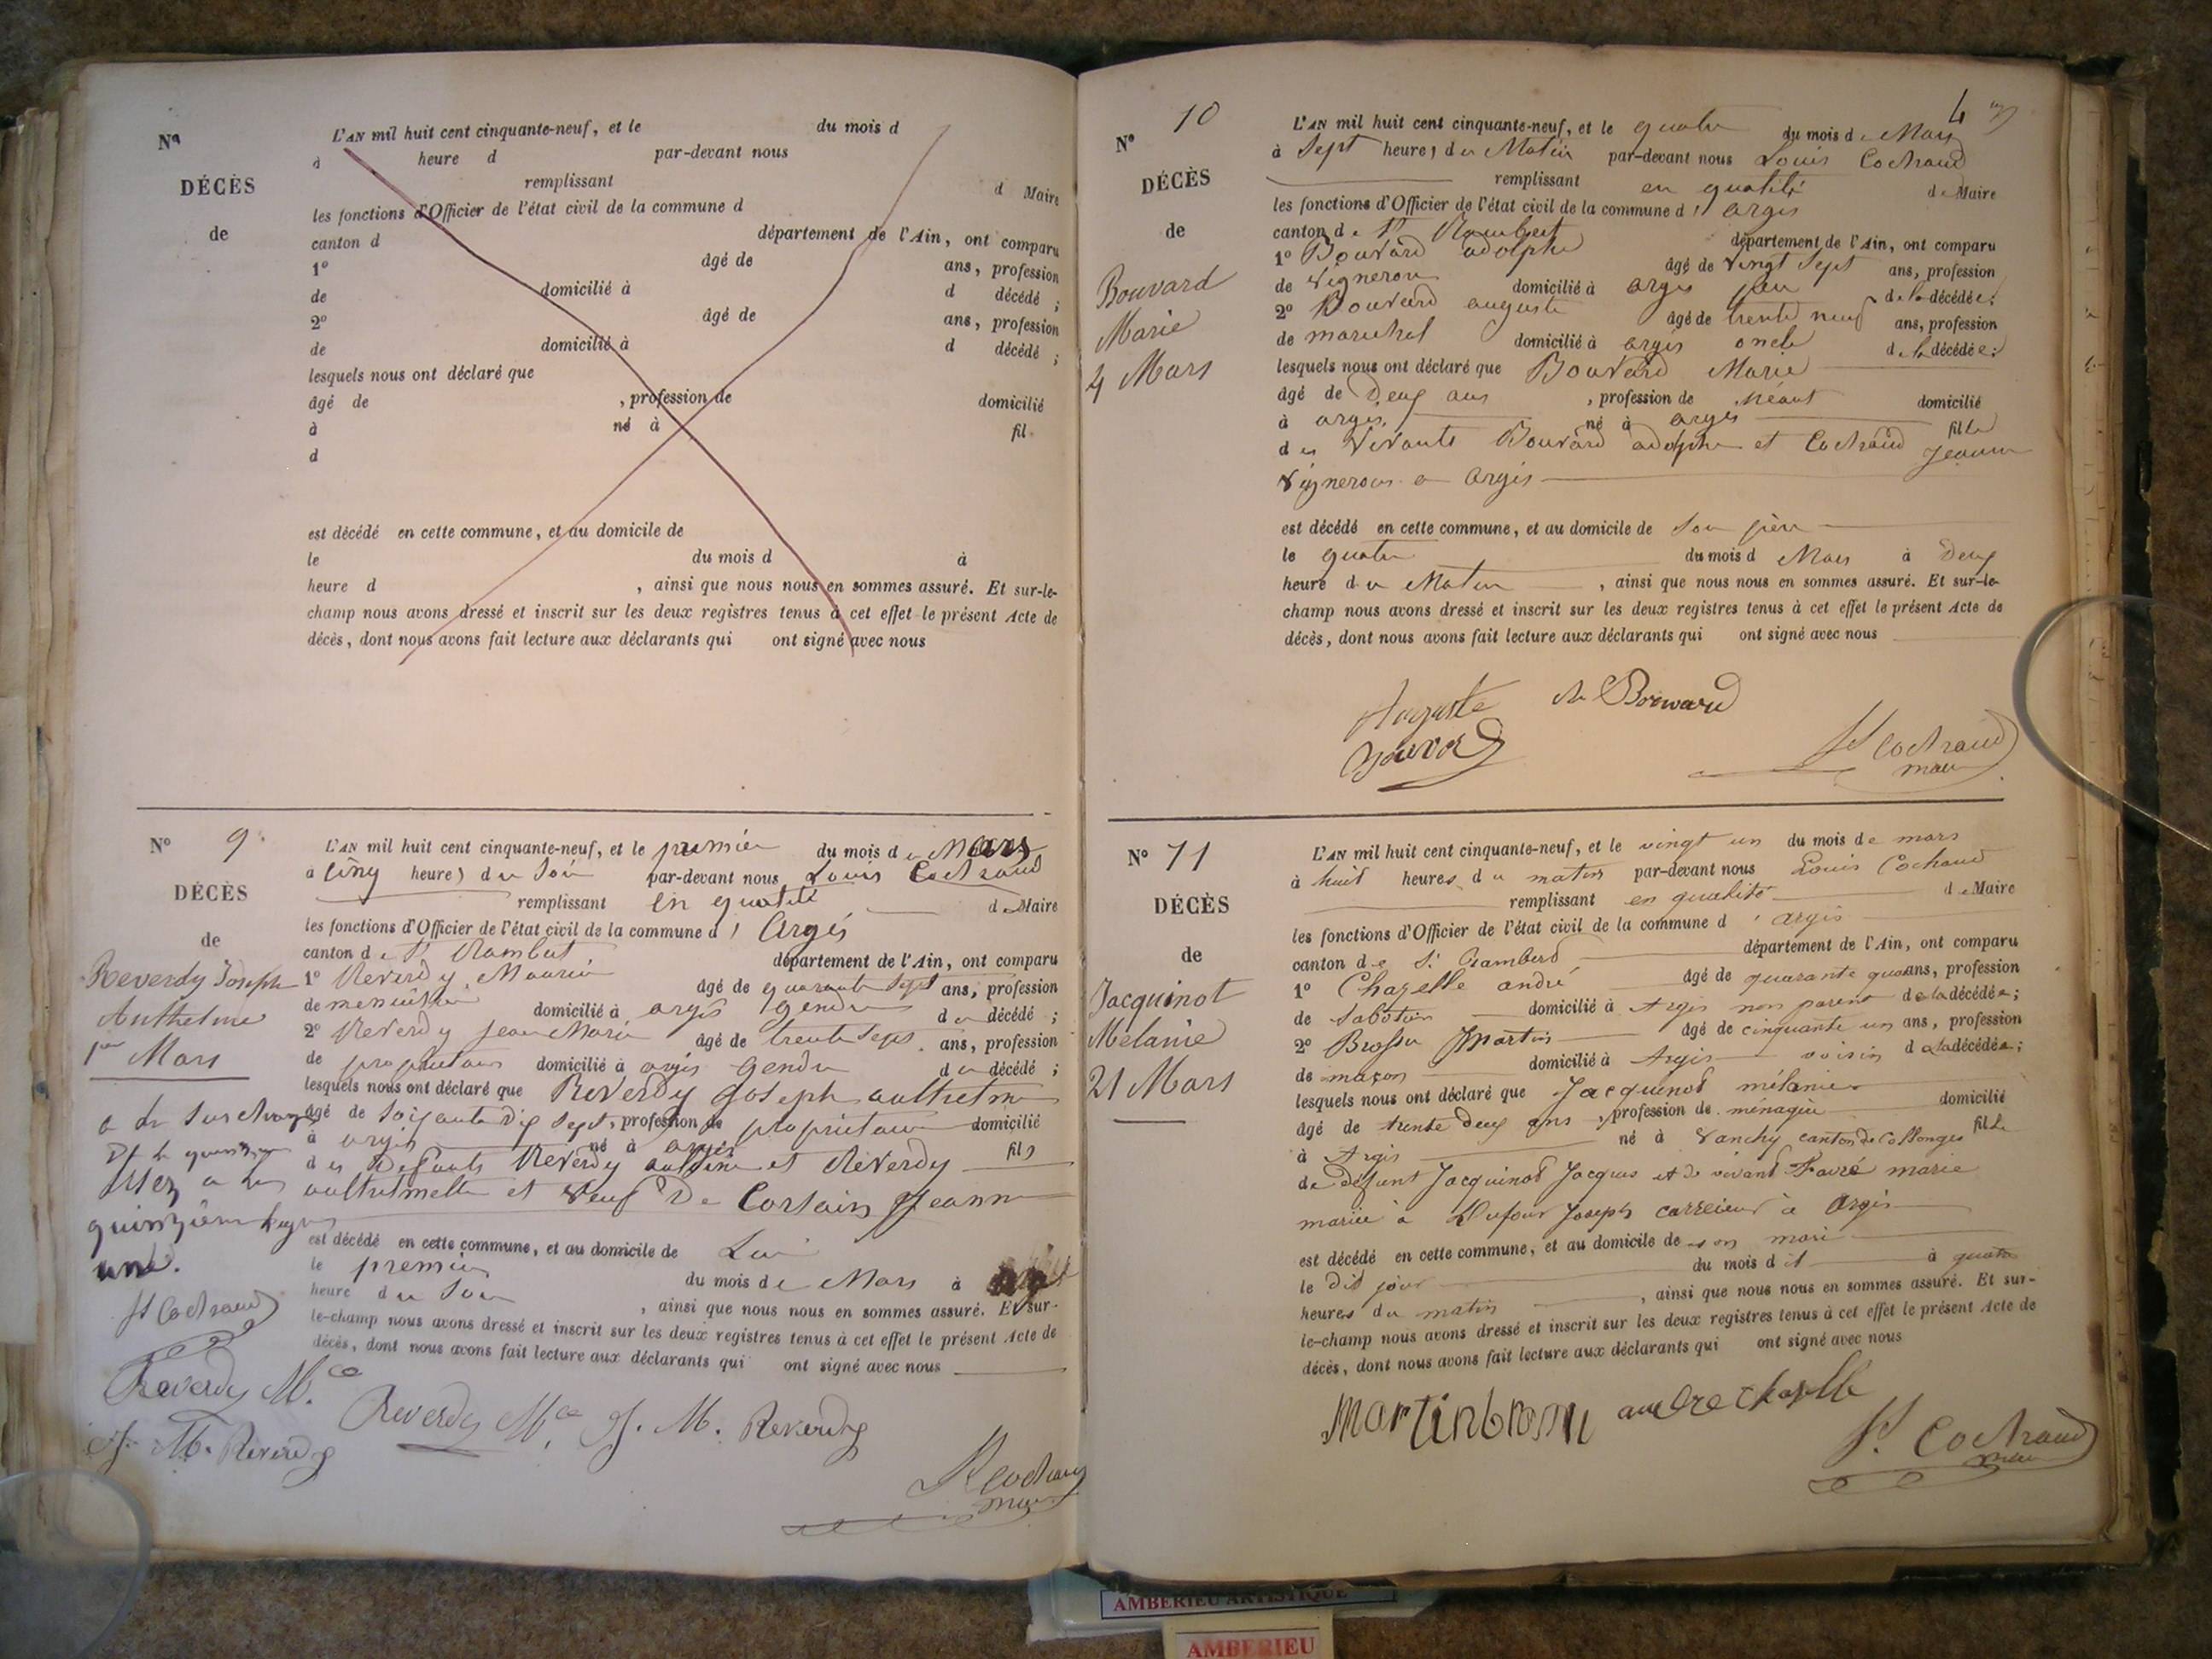 Nº
DÉCÈS
de
L'AN mil huit cent cinquante-neuf, et le du mois d
à heure d par-devant nous
remplissant d Maire
les fonctions d'Officier de l'état civil de la commune d
canton d département de l'Ain, ont comparu
1º âgé de ans, profession
de domicilié à d décédé ;
2º âgé de ans, profession
de domicilié à d décédé ;
lesquels nous ont déclaré que
âgé de , profession de domicilié
à né à fil
d
est décédé en cette commune, et au domicile de
le du mois d à
heure d , ainsi que nous nous en sommes assuré. Et sur-le-
champ nous avons dressé et inscrit sur les deux registres tenus à cet effet le présent Acte de
décès, dont nous avons fait lecture aux déclarants qui ont signé avec nous
Nº 9.
DÉCÈS
de
Reverdy Joseph
Anthelme
1er Mars
L'AN mil huit cent cinquante-neuf, et le premier du mois de Mars
à cinq heures du Soir par-devant nous Louis Cochaud
remplissant en qualité de Maire
les fonctions d'Officier de l'état civil de la commune d' Argis
canton de St Rambert département de l'Ain, ont comparu
1º Reverdy Mauric âgé de quarante sept ans, profession
de menuisier domicilié à argis Gendre du décédé ;
2º Reverdy Jean Marie âgé de trente sept ans, profession
de proprietaire domicilié à argis Gendre du décédé ;
lesquels nous ont déclaré que Reverdy Joseph anthelme
âgé de soixante dix sept, profession de proprietaire domicilié
à argis né à argis fils
des Defunts Reverdy et Reverdy
et veuf De Corsain Jeanne
est décédé en cette commune, et au domicile de Lui
le premier du mois de Mars à
heure du Soir , ainsi que nous nous en sommes assuré. Et sur-
le-champ nous avons dressé et inscrit sur les deux registres tenus à cet effet le présent Acte de
décès, dont nous avons fait lecture aux déclarants qui ont signé avec nous
quinzième ligne
une.
Ls Cochaud
Reverdy Mce
J. M. Reverdy
Reverdy Mce J. M. Reverdy
Ls Cochaud
maire
4
Nº 10
DÉCÈS
de
Bouvard
Marie
4 Mars
L'AN mil huit cent cinquante-neuf, et le quatre du mois de Mars
à Sept heures du Matin par-devant nous Louis Cochaud
remplissant en qualité de Maire
les fonctions d'Officier de l'état civil de la commune d' argis
canton de St Rambert département de l'Ain, ont comparu
1º Bouvard adolphe âgé de vingt sept ans, profession
de Vigneron domicilié à argis père de la décédée ;
2º Bouvard auguste âgé de trente neuf ans, profession
de marechal domicilié à argis oncle de la décédée ;
lesquels nous ont déclaré que Bouvard Marie
âgé de Deux ans , profession de Néant domicilié
à argis né à argis fille
des Vivants Bouvard adolphe et Cochaud Jeanne
Vignerons a Argis
est décédé en cette commune, et au domicile de son père
le quatre du mois d Mars à Deux
heure du Matin , ainsi que nous nous en sommes assuré. Et sur-le-
champ nous avons dressé et inscrit sur les deux registres tenus à cet effet le présent Acte de
décès, dont nous avons fait lecture aux déclarants qui ont signé avec nous
Auguste Bouvard
Bouvard
Ls Cochaud
maire
Nº 11
DÉCÈS
de
Jacquinot
Melanie
21 Mars
L'AN mil huit cent cinquante-neuf, et le vingt un du mois de mars
à huit heures du matin par-devant nous Louis Cochaud
remplissant en qualité de Maire
les fonctions d'Officier de l'état civil de la commune d' argis
canton de St Rambert département de l'Ain, ont comparu
1º Chapelle andré âgé de quarante quatre ans, profession
de Sabotier domicilié à Argis non parent de la décédée ;
2º Brossu Martin âgé de cinquante un ans, profession
de maçon domicilié à Argis voisin de la décédée ;
lesquels nous ont déclaré que Jacquinot mélanie
âgé de trente deux ans , profession de ménagère domicilié
à Argis né à Vanchy canton de Collonges fille
de défunt Jacquinot Jacques et de vivant Favré marie
mariée à Dufour Joseph carrieur à Argis
est décédé en cette commune, et au domicile de son mari
le dit jour du mois dit à quatre
heures du matin , ainsi que nous nous en sommes assuré. Et sur-
le-champ nous avons dressé et inscrit sur les deux registres tenus à cet effet le présent Acte de
décès, dont nous avons fait lecture aux déclarants qui ont signé avec nous
Martin brossu andre chapelle
Ls Cochaud
maire
AMBERIEU ARTISTIQUE
AMBERIEU